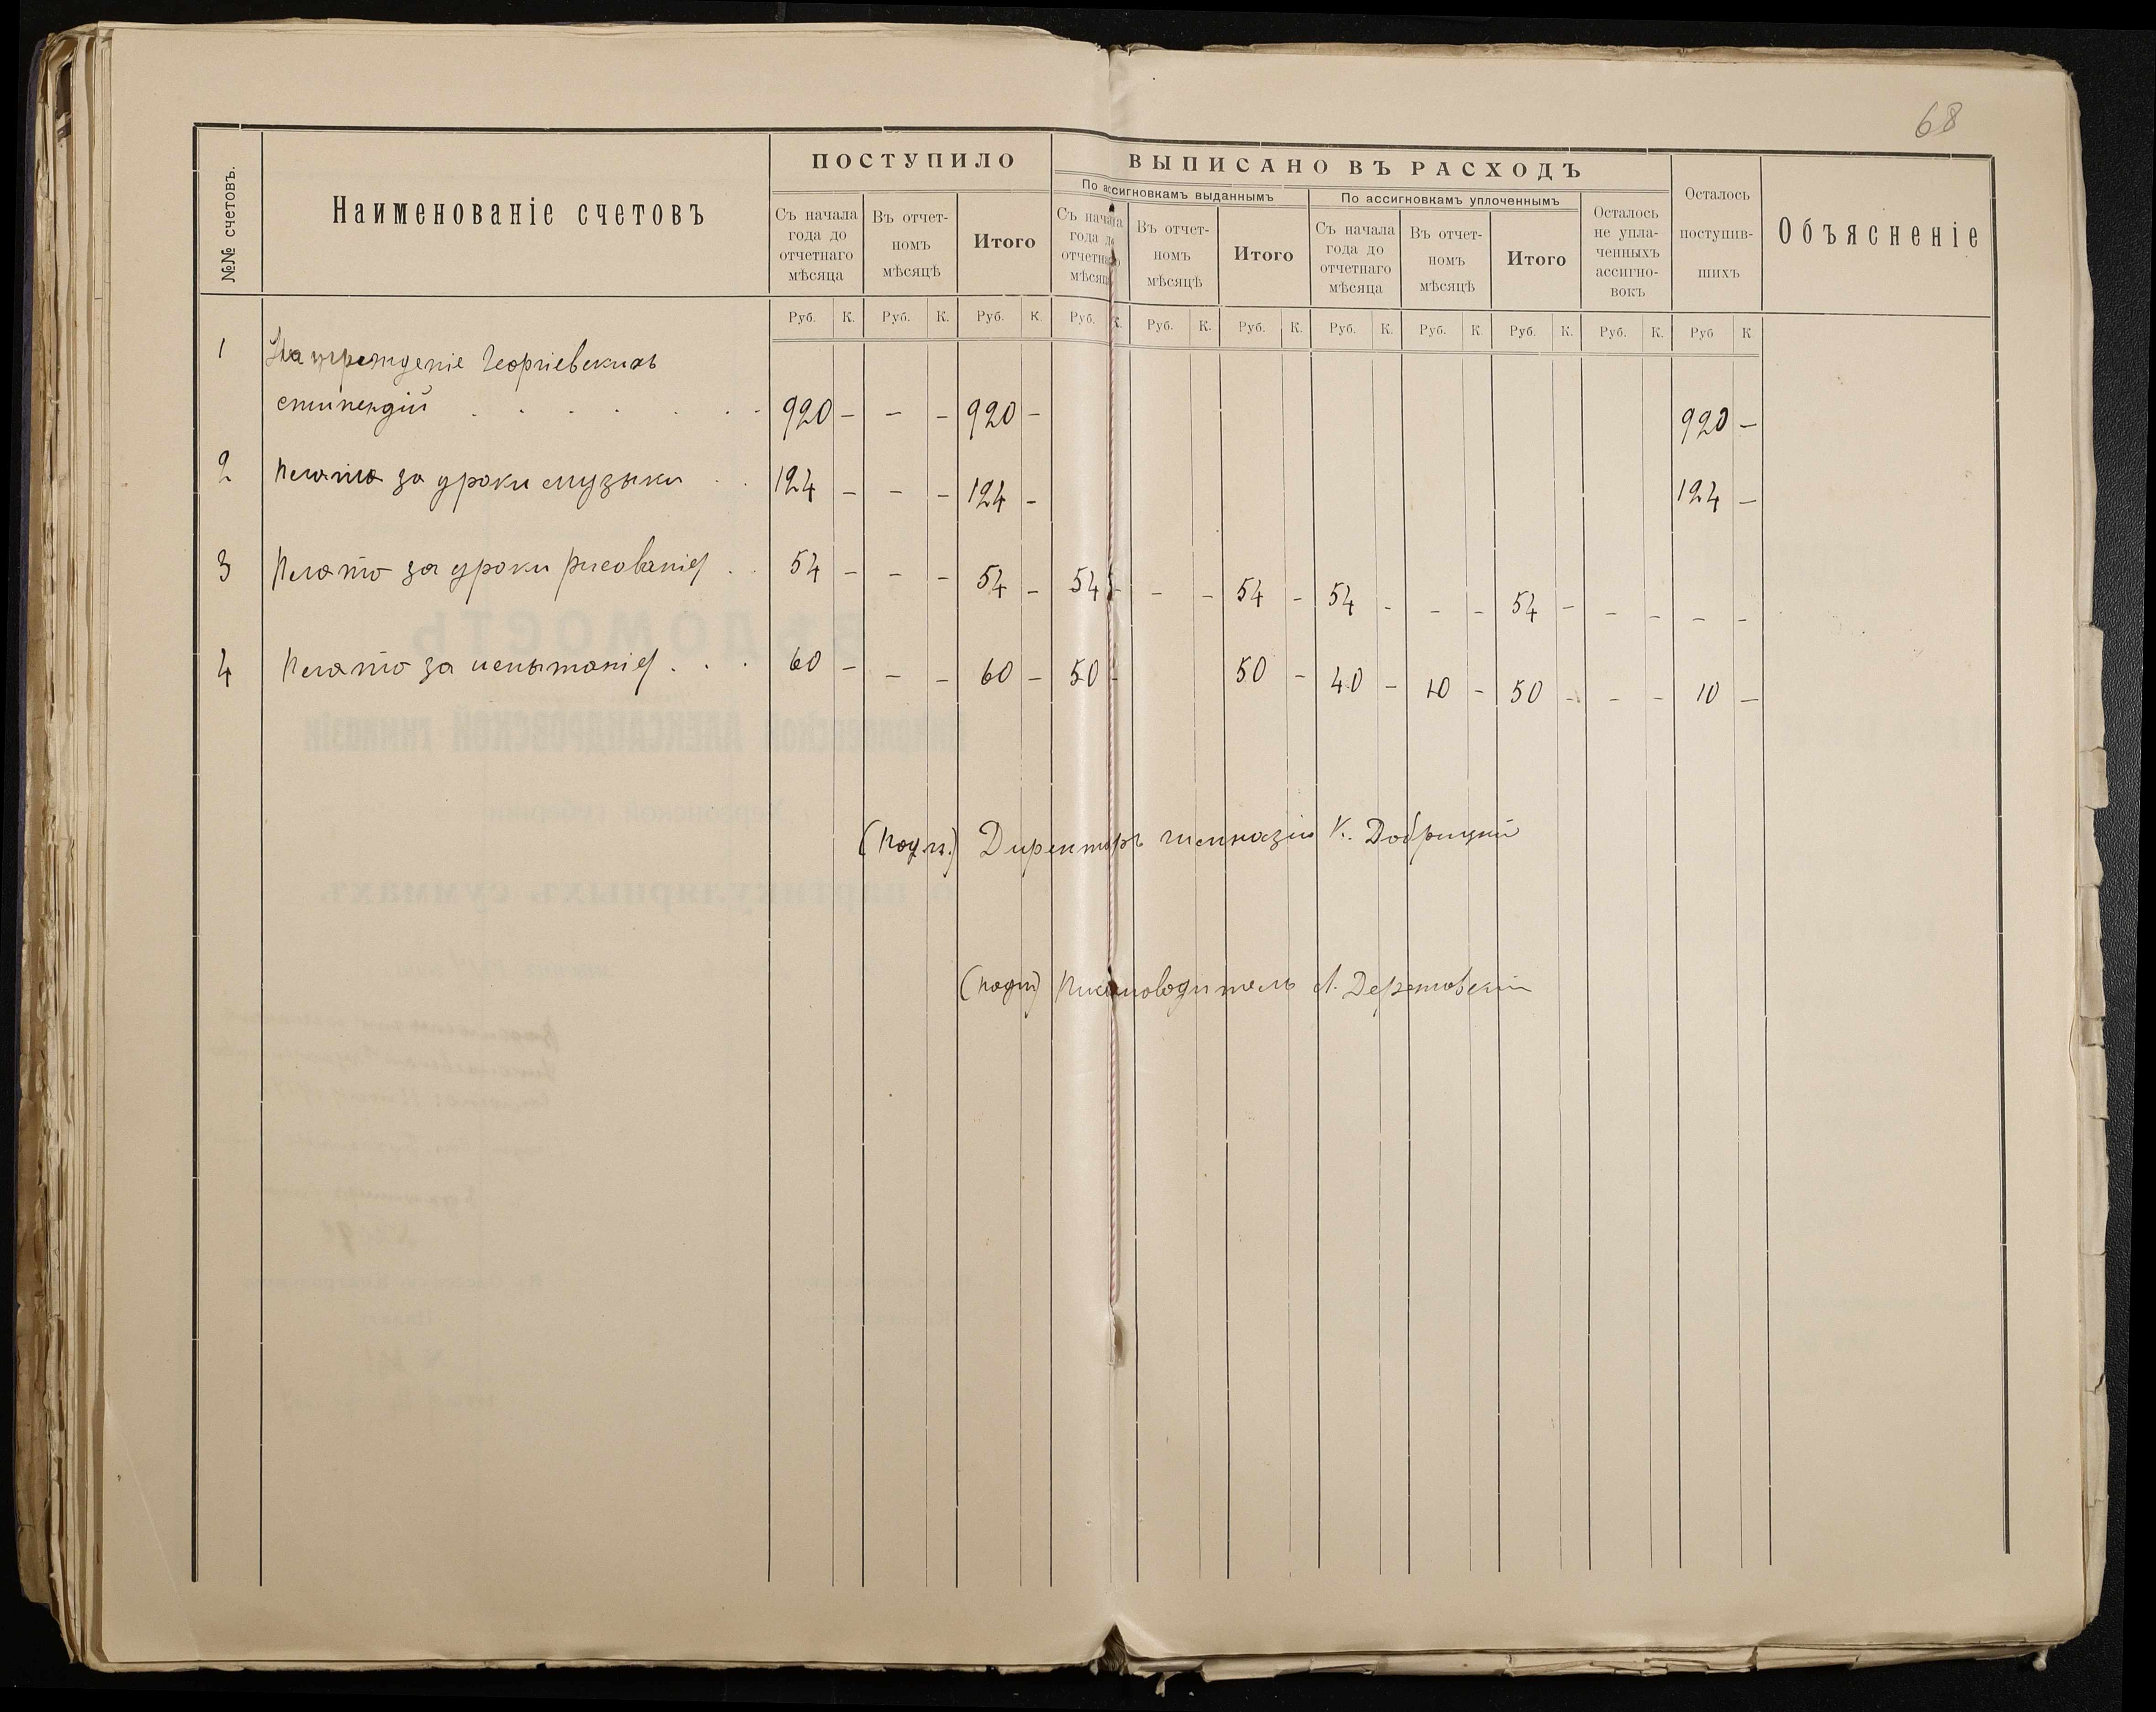 68
№№ счетовъ.
Наименованіе счетовъ
ПОСТУПИЛО
ВЫПИСАНО ВЪ РАСХОДЪ
По ассигновкамъ выданнымъ
По ассигновкамъ уплоченнымъ
Съ начала года до отчетнаго мѣсяца
Въ отчет-номъ мѣсяцѣ
Итого
Съ начала года до отчетнаго мѣсяца
Въ отчет-номъ мѣсяцѣ
Итого
Съ начала года до отчетнаго мѣсяца
Въ отчет-номъ мѣсяцѣ
Итого
Осталось не упла-ченныхъ ассигно-вокъ
Осталось поступив-шихъ
Объясненіе
Руб. К. Руб. К. Руб. К. Руб. К. Руб. К. Руб. К. Руб. К. Руб. К Руб. К. Руб. К. Руб К
1 На учрежденіе Георгіевскихъ
стипендій . . . . . . . 920 – – – 920 – 920 –
2 Плата за уроки музыки . . 124 – – – 124 – 124 –
3 Плата за уроки рисованія . . 54 – – – 54 – 54 – – – 54 – 54 – – – 54 – – – – –
4 Плата за испытанія . . . 60 – – – 60 – 50 – 50 – 40 – 10 – 50 – – – 10 –
(подп.) Директоръ гимназіи К. Добрицкій
(подп) Письмоводитель